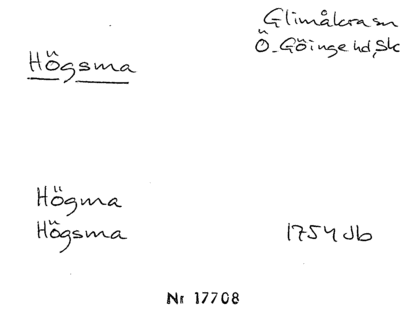 Glimåkra sn
Högsma
Ö. Göinge hd, Sk
Högma
Högsma 1754 Jb
Nr 17708